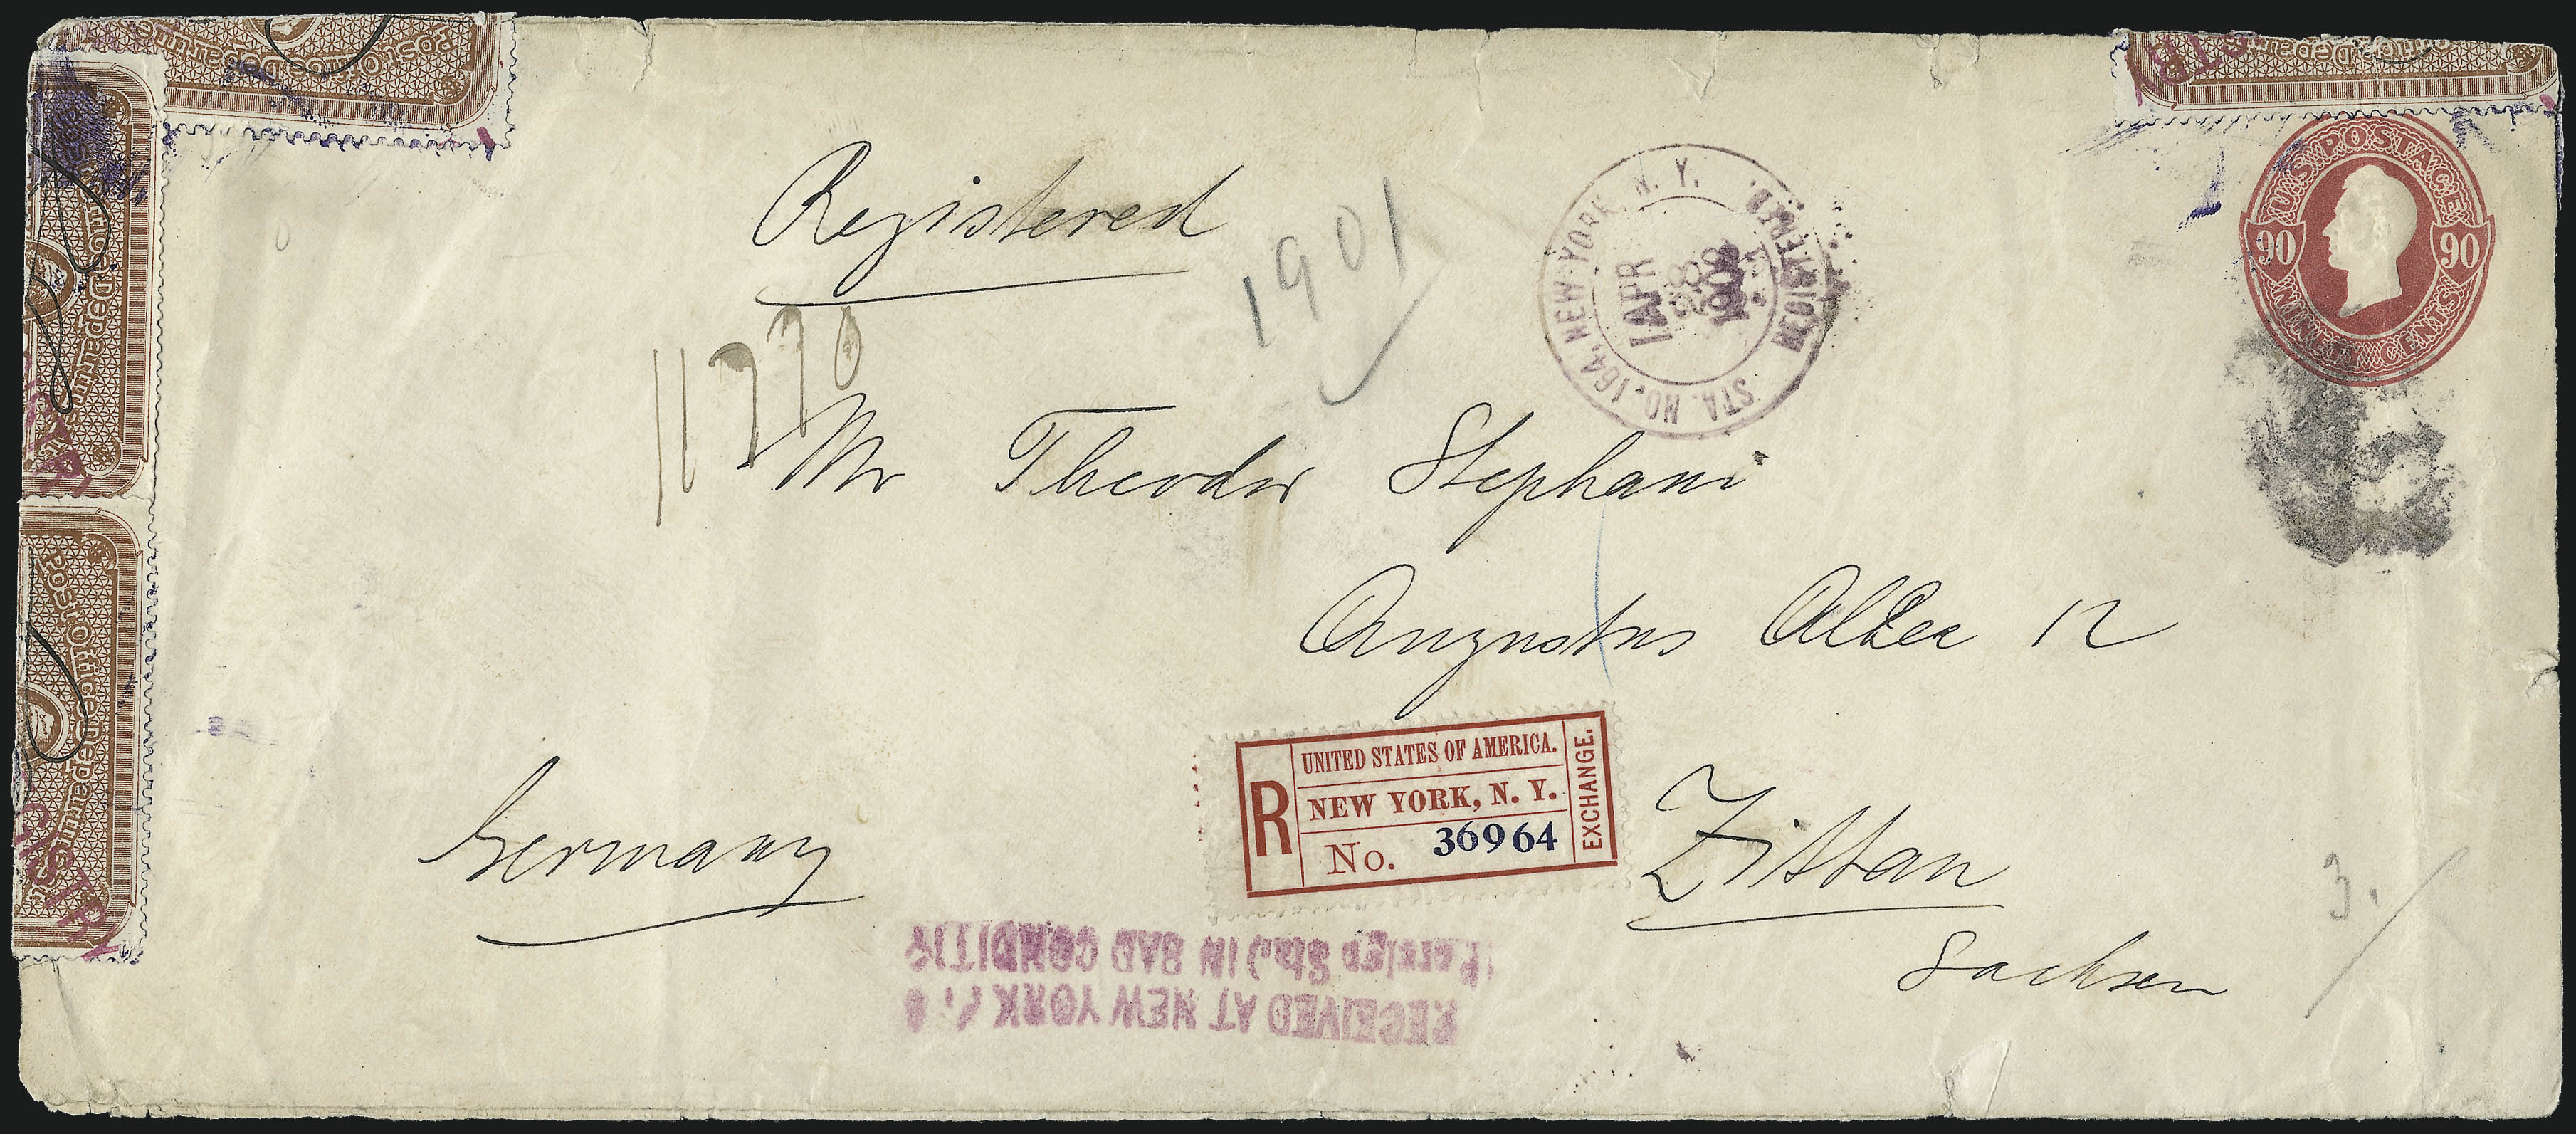 Post Office Departme
Post Office Departme
U.S. POSTAGE
90 90
NINETY CENTS
Registered
1901
11770
STA. NO. 164, NEW YORK, N. Y.
REGISTERED.
1 APR
28
1908
Mr Theodor Stephani
Augustus Allee 12
R
UNITED STATES OF AMERICA.
NEW YORK, N. Y.
No. 36964
EXCHANGE.
Zittau
Germany
Sachsen
3.
RECEIVED AT NEW YORK
IN BAD CONDITI
Post Office Departme
Post Office Departme